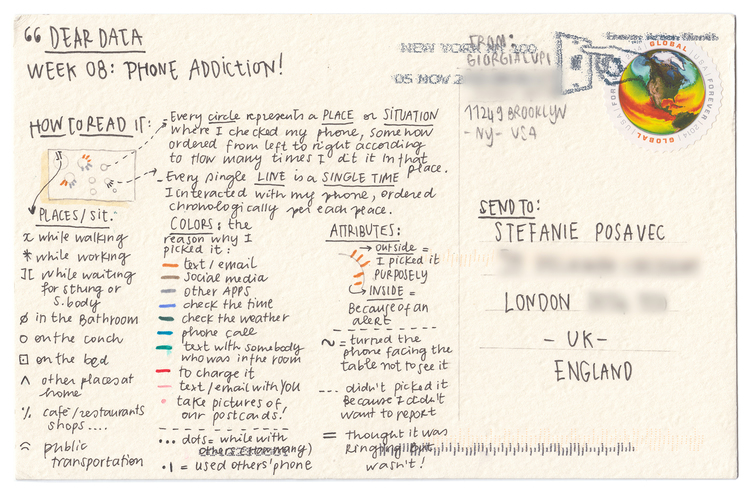 “ DEAR DATA
WEEK 08: PHONE ADDICTION!
HOW TO READ IT:
- Every circle represents a PLACE or SITUATION
where I checked my phone, somehow
ordered from left to right according
to How many times I dit it in that
place.
- Every single LINE is a SINGLE TIME
I interacted with my phone, ordered
chronologically per each peace.
PLACES/SIT:
x while walking
* while working
while waiting
for sthing or
s.body
ø in the Bathroom
o on the couch
⊡ on the bed
^ other places at
home
café/restaurants
shops....
public
transportation
COLORS: the
reason why I
picked it:
text/email
social media
other APPS
check the time
check the weather
phone call
text with somebody
who was in the room
to charge it
text/email with YOU
take pictures of
our postcards!
... dots = while with
others (
·| = used others' phone
ATTRIBUTES:
→ outside =
I picked it
PURPOSELY
→ INSIDE =
Because of an
alert
~ = turned the
phone facing the
table not to see it
--- didn't picked it
Because I didn't
want to report
= thought it was
ringing but
wasn't!
FROM:
GIORGIA LUPI
11249 BROOKLYN
- NY - USA
NEW YORK NY 100
05 NOV 2
GLOBAL
USA
FOREVER
SEND TO:
STEFANIE POSAVEC
LONDON
- UK -
ENGLAND